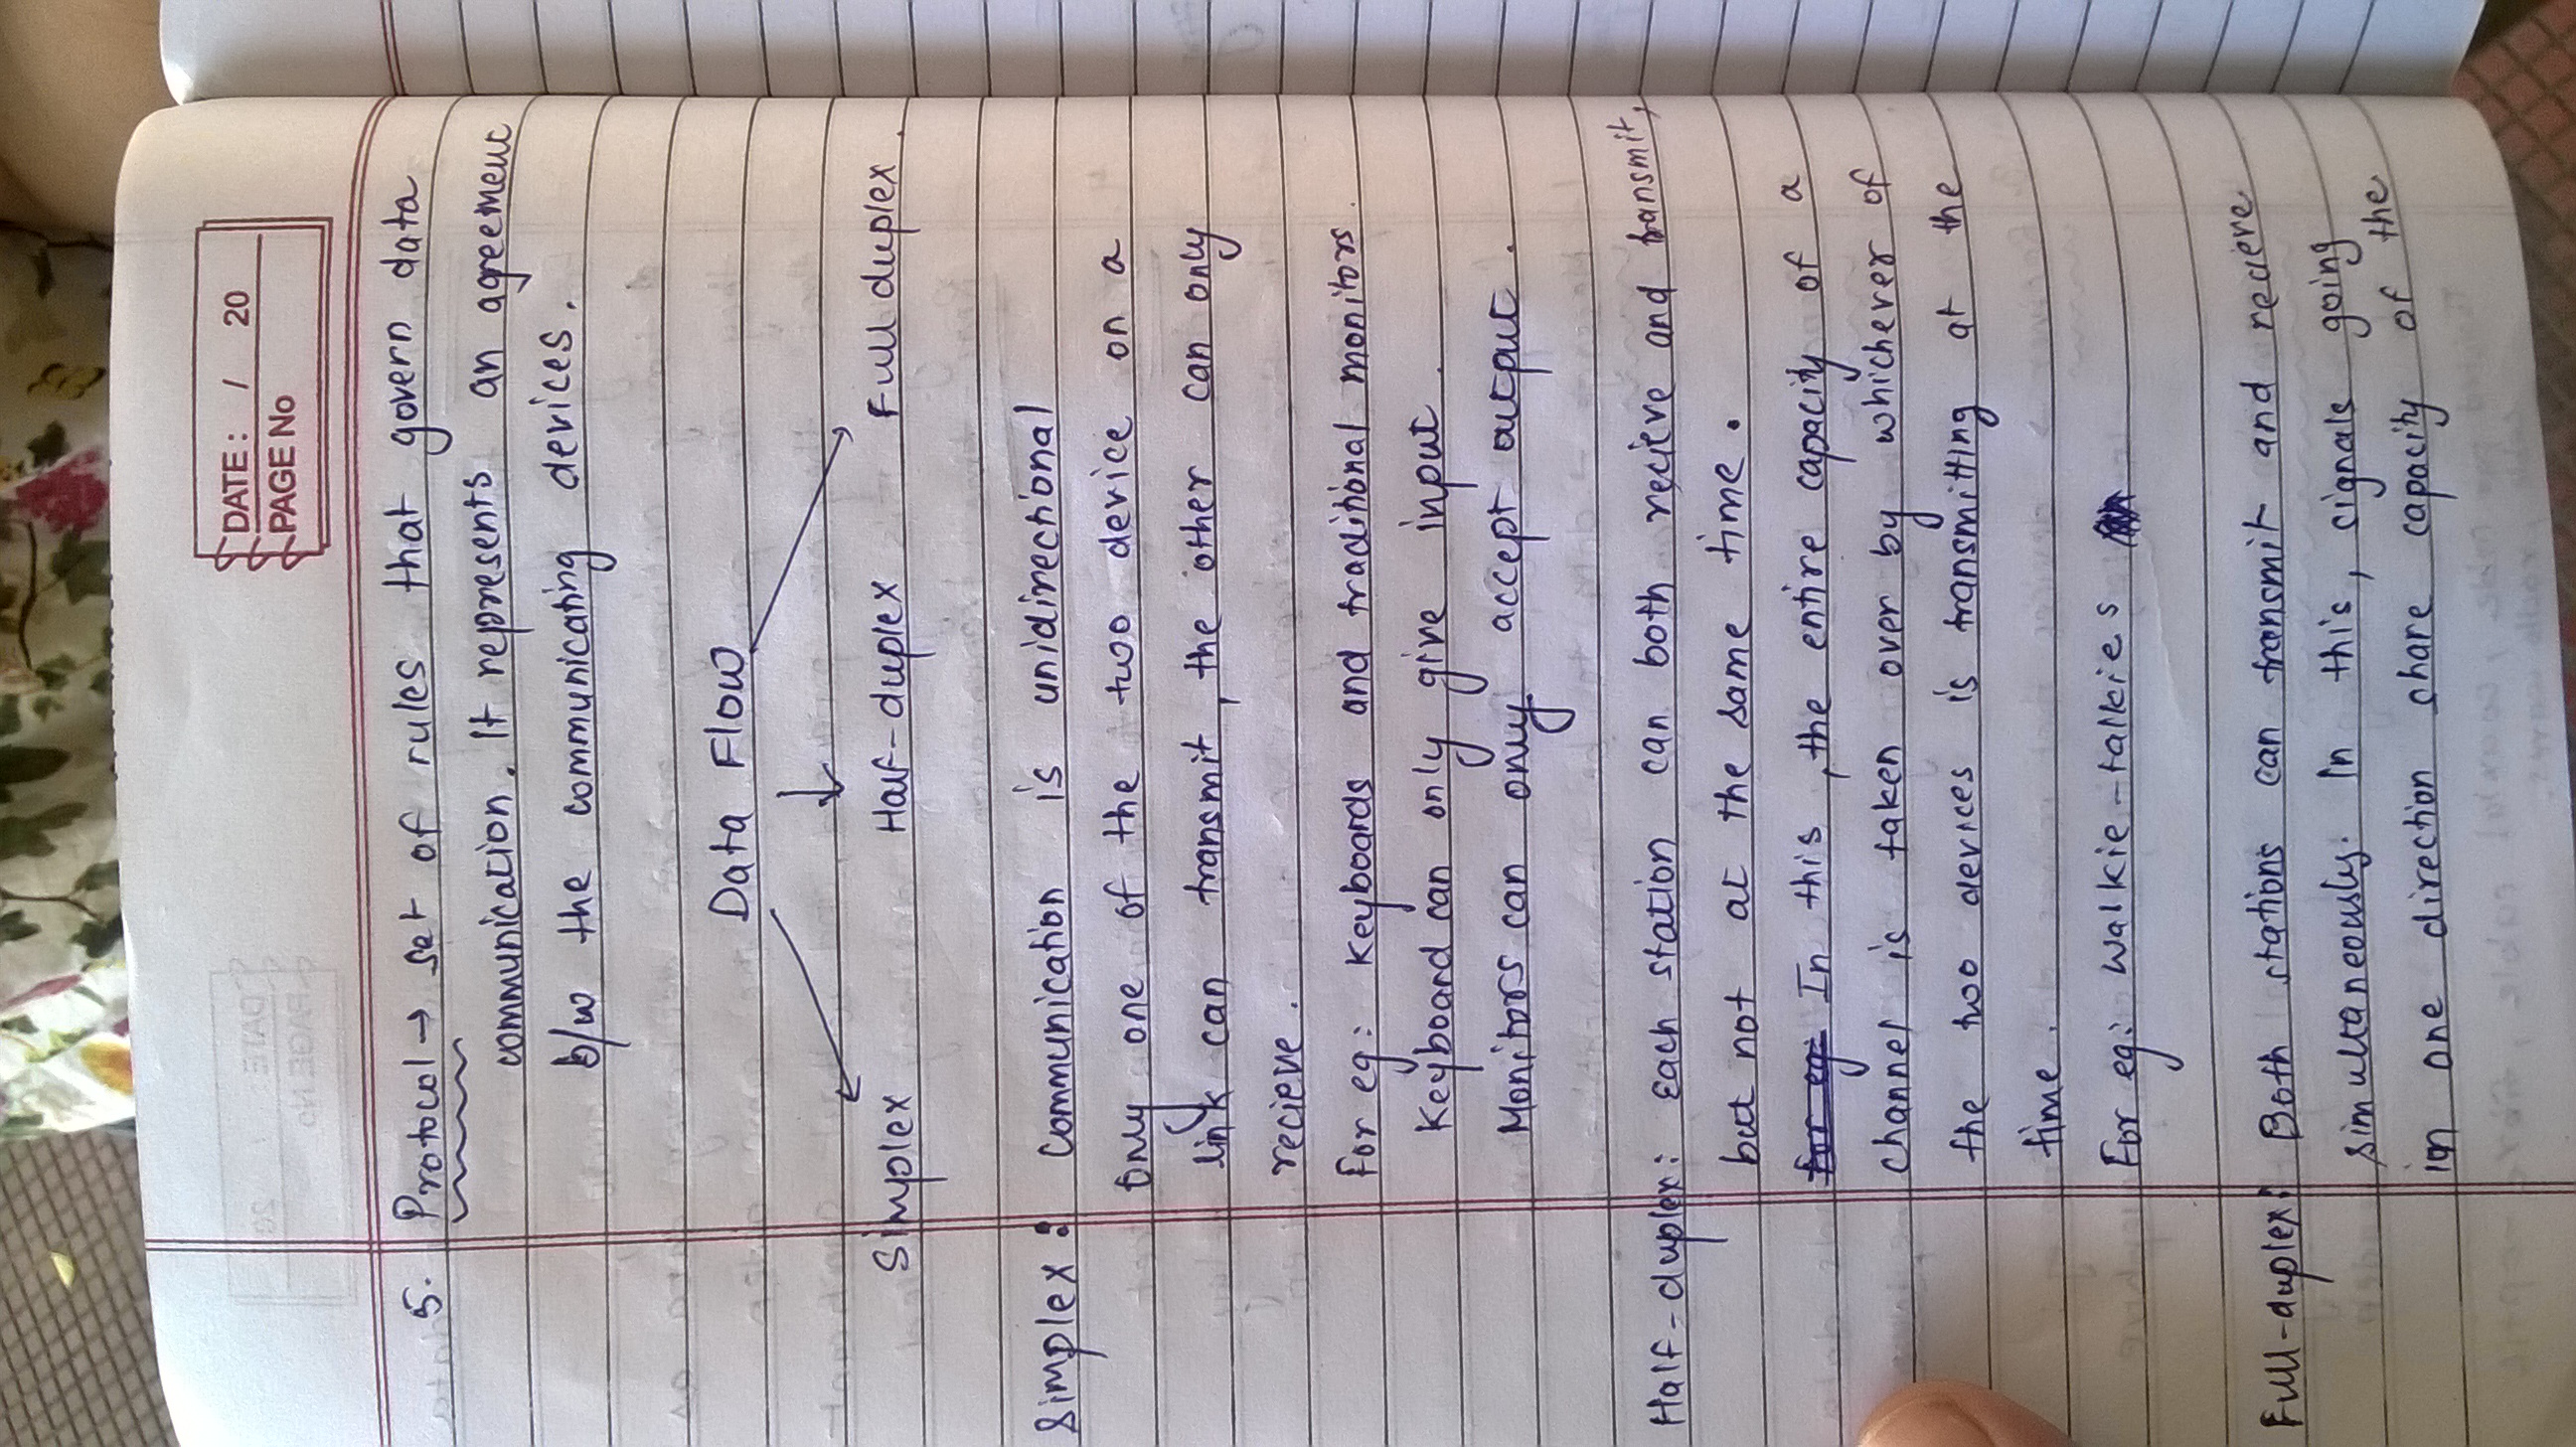 DATE: / 20
PAGE No
5. Protocol → set of rules that govern data
communication. It represents an agreement
b/w the communicating devices.
Data Flow
Simplex Half-duplex Full duplex.
Simplex: Communication is unidirectional
Only one of the two device on a
link can transmit, the other can only
recieve.
For eg: Keyboards and traditional monitors.
Keyboard can only give input.
Monitors can only accept output.
Half-duplex: Each station can both recieve and transmit,
but not at the same time.
for eg: In this, the entire capacity of a
channel is taken over by whichever of
the two devices is transmitting at the
time.
For eg: Walkie-talkies
Full-duplex: Both stations can transmit and recieve
simultaneously. In this, signals going
in one direction share capacity of the